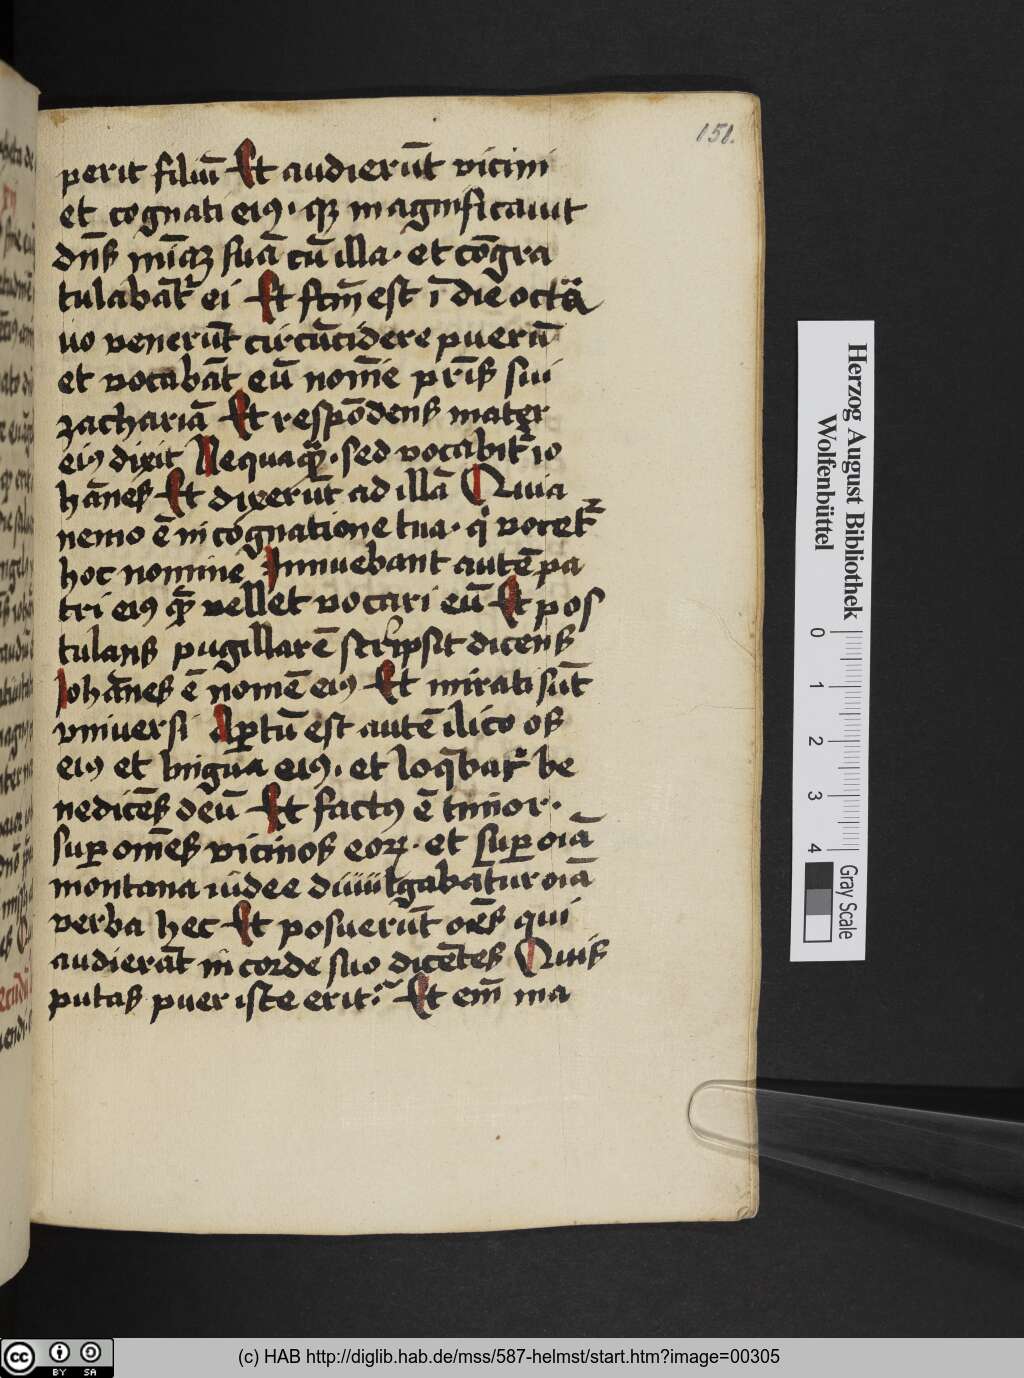 151.
perit filiū Et audierūt vicini
et cognati eiꝰ · qꝫ magnificauit
dn̄s mīaꝫ suā cū illa · et cōgra
tulabāt᷑ ei Et fcm̄ est ī die octa
uo venerūt circūcidere puerū
et vocabāt eū nomīe pr̄is sui
zachariā Et respōdens mater
eiꝰ dixit Nequaqꝫ · sed vocabit᷑ io
hānes Et dixerūt ad illā Quia
nemo ē in cognatione tua · qͥ vocet᷑
hoc nomine Innuebant autē pa
tri eiꝰ quē vellet vocari eū Et pos
tulans pugillarē scripsit dicens
Johānes ē nomē eiꝰ Et mirati sūt
vniuersi Aꝑtū est autē ilico os
eiꝰ et lingua eiꝰ · et loq̄bat᷑ be
nedicēs deū Et factꝰ ē timor ·
suꝑ om̄es vicinos eoꝝ · et suꝑ oīa
montana iudee diuulgabatur oīa
verba hec Et posuerūt oēs qui
audierāt in corde suo dicētes Quis
putas puer iste erit? Et em̄ ma
Herzog August Bibliothek
Wolfenbüttel
0 1 2 3 4
Gray Scale
cc BY SA
(c) HAB http://diglib.hab.de/mss/587-helmst/start.htm?image=00305